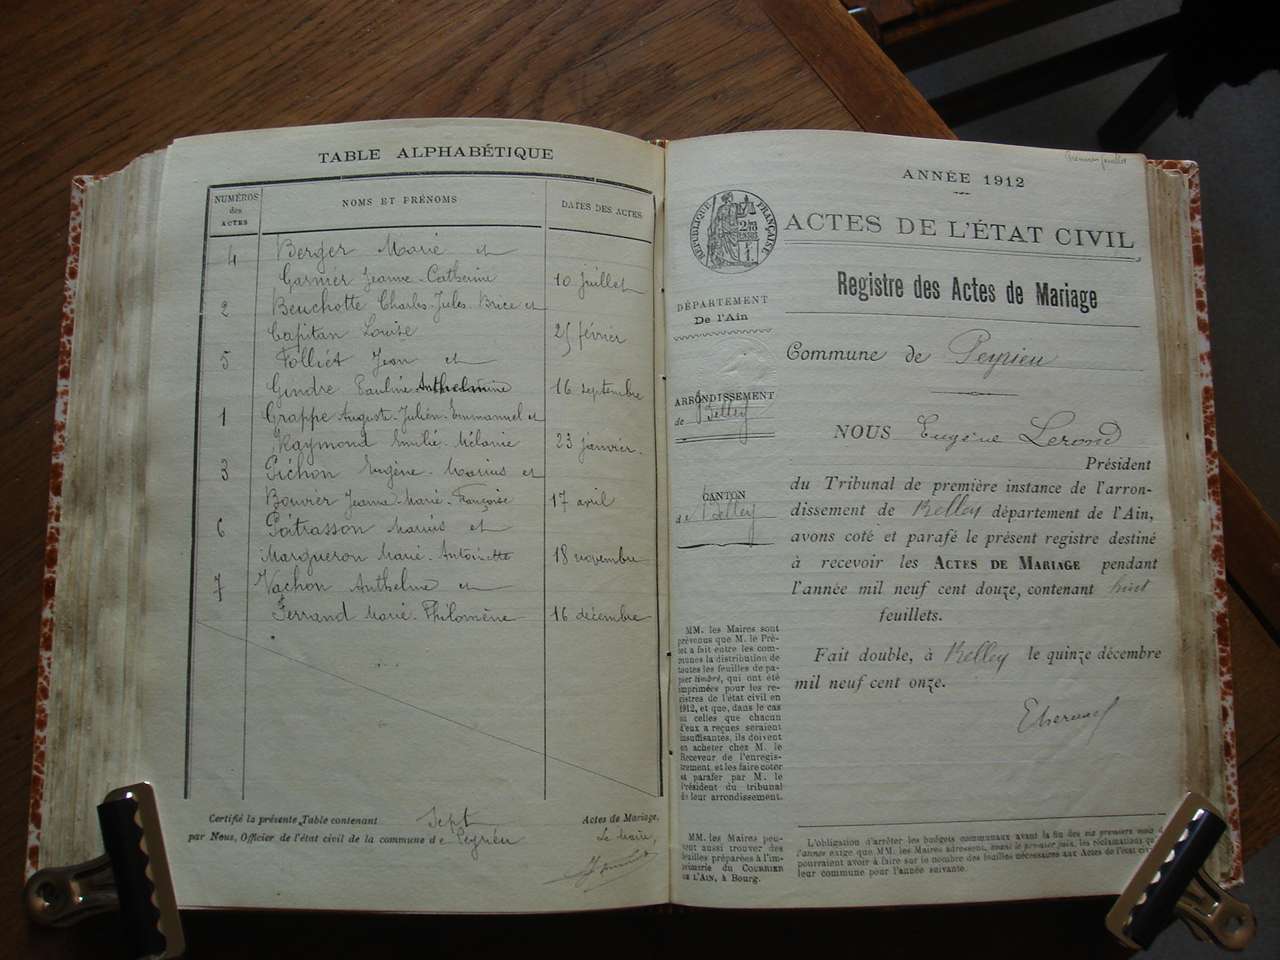 TABLE ALPHABÉTIQUE
NUMÉROS des ACTES
NOMS ET PRÉNOMS
DATES DES ACTES
4 Berger Marie et
Garnier Jeanne-Catherine 10 juillet
2 Beuchotte Charles-Jules-Brice et
Capitan Louise 25 février
5 Folliet Jean et
Gindre Pauline Anthelmine 16 septembre
1 Grappe Auguste-Julien-Emmanuel et
Raymond Emilie-Mélanie 23 janvier.
3 Pichon Eugène-Marius et
Bouvier Jeanne-Marie-Françoise 17 avril
6 Poitrasson Marius et
Margueron Marie-Antoinette 18 novembre
7 Vachon Anthelme et
Ferrand Marie-Philomène 16 décembre
Certifié la présente Table contenant Sept Actes de Mariage,
par Nous, Officier de l'état civil de la commune de Peyrieu
Le Maire,
Premier feuillet
ANNÉE 1912
RÉPUBLIQUE FRANÇAISE
ACTES DE L'ÉTAT CIVIL
Registre des Actes de Mariage
DÉPARTEMENT
De l'Ain
ARRONDISSEMENT
de Belley
CANTON
de Belley
Commune de Peyrieu
NOUS Eugène Lerond
Président
du Tribunal de première instance de l'arron-
dissement de Belley département de l'Ain,
avons coté et parafé le présent registre destiné
à recevoir les ACTES DE MARIAGE pendant
l'année mil neuf cent douze, contenant huit
feuillets.
Fait double, à Belley le quinze décembre
mil neuf cent onze.
MM. les Maires sont
prévenus que M. le Pré-
fet a fait entre les com-
munes la distribution de
toutes les feuilles de pa-
pier timbré, qui ont été
imprimées pour les re-
gistres de l'état civil en
1912, et que, dans le cas
où celles que chacun
d'eux a reçues seraient
insuffisantes, ils doivent
en acheter chez M. le
Receveur de l'enregis-
trement et les faire coter
et parafer par M. le
Président du tribunal
de leur arrondissement.
MM. les Maires peu-
vent aussi trouver des
feuilles préparées à l'im-
primerie du COURRIER
DE L'AIN, à Bourg.
L'obligation d'arrêter les budgets communaux avant la fin des six premiers mois de
l'année exige que MM. les Maires adressent, avant le premier juin, les réclamations qu'ils
pourraient avoir à faire sur le nombre des feuilles nécessaires aux Actes de l'état civil de
leur commune pour l'année suivante.